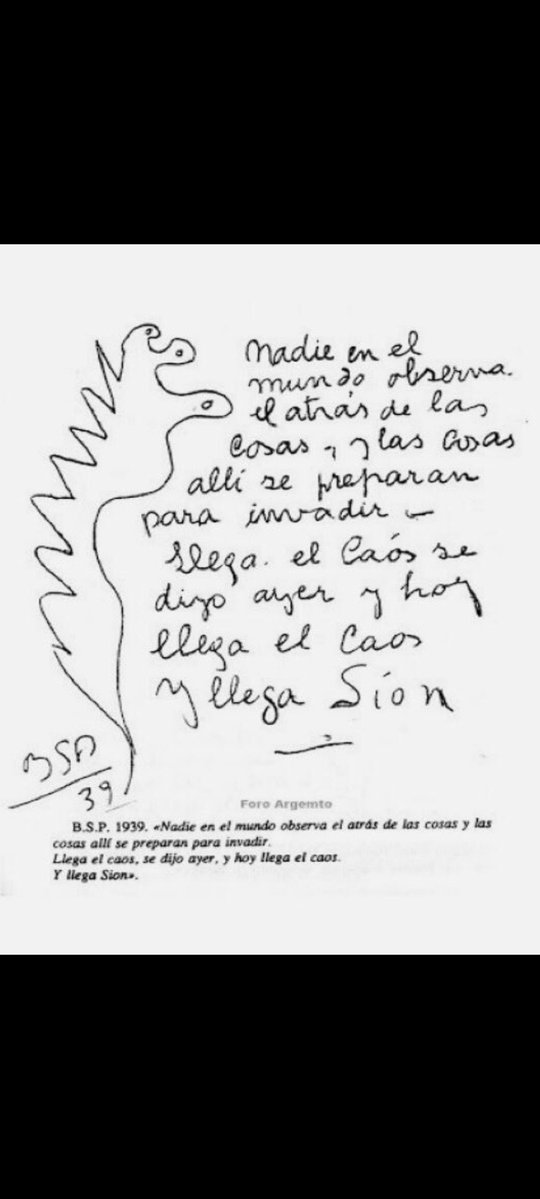 Nadie en el
mundo observa.
el atrás de las
cosas, y las cosas
allí se preparan
para invadir -
Llega. el Caós se
dijo ayer y hoy
llega el Caos
Y llega Sion
BSP
39
Foro Argemto
B.S.P. 1939. «Nadie en el mundo observa el atrás de las cosas y las
cosas allí se preparan para invadir.
Llega el caos, se dijo ayer, y hoy llega el caos.
Y llega Sion».